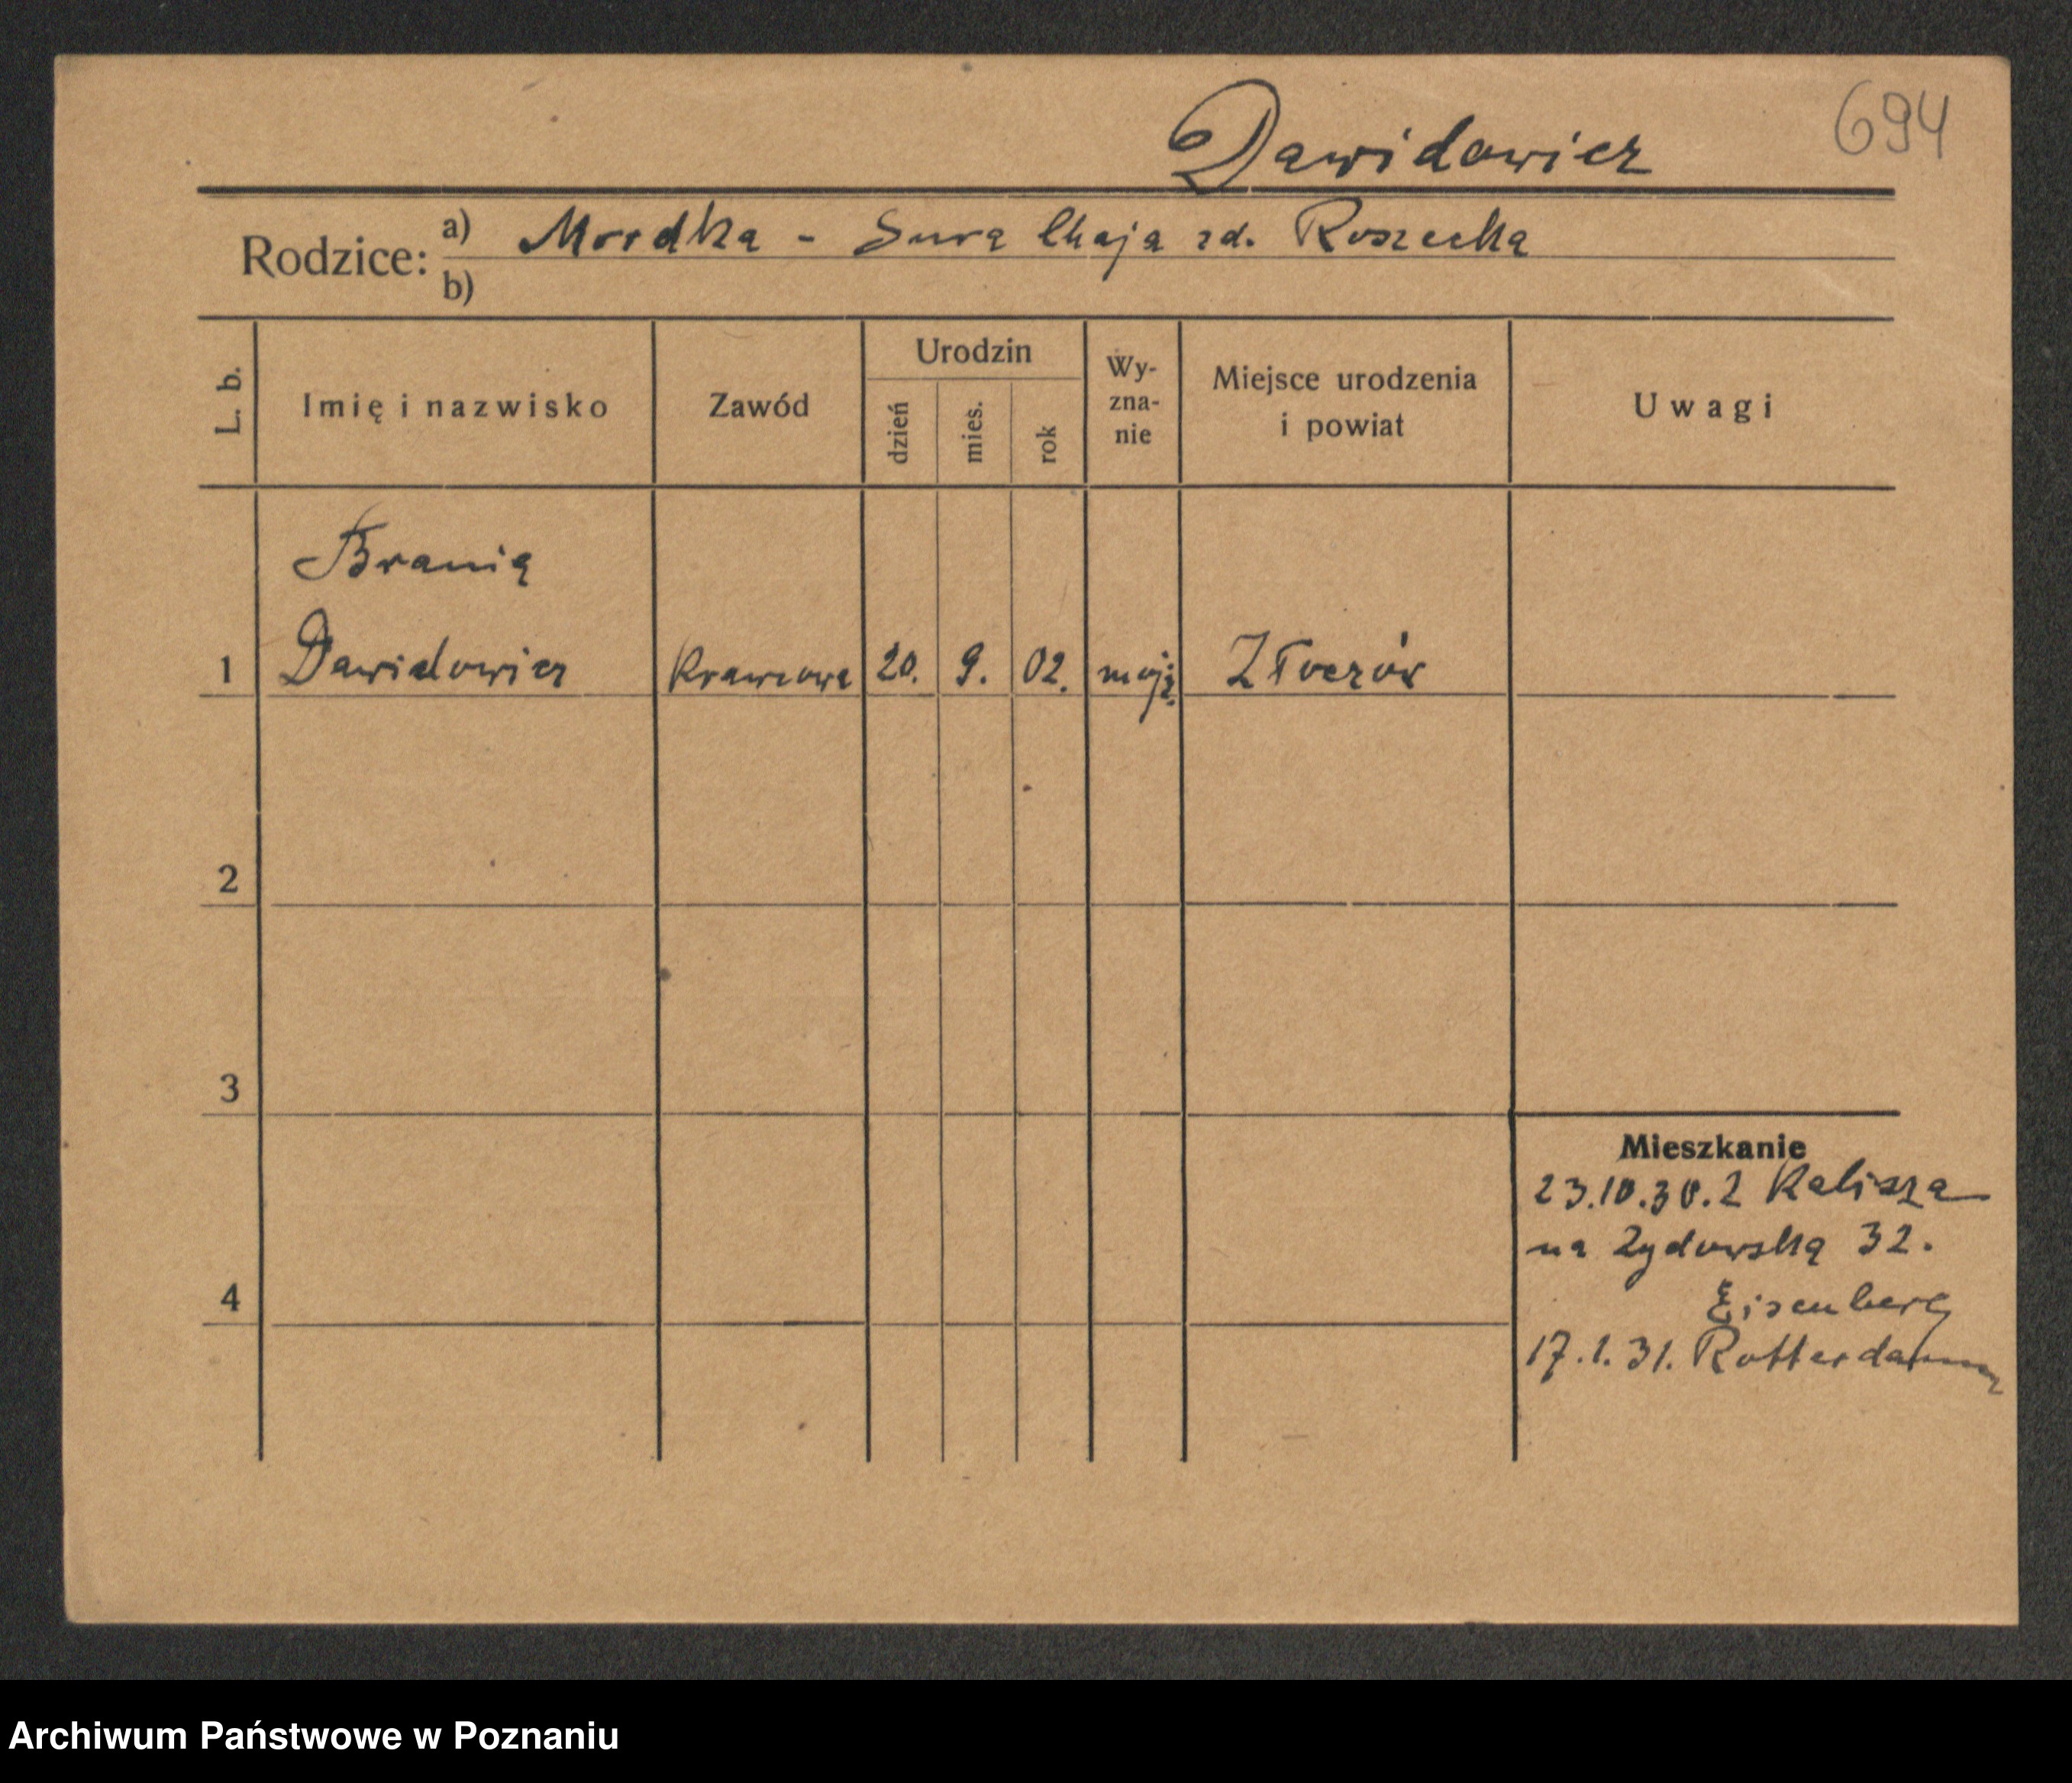 694
Dawidowicz
Rodzice: a) Mordka - Sura Chaja zd. Roszecka
b)
L. b. Imię i nazwisko Zawód Urodzin dzień mies. rok Wy-zna-nie Miejsce urodzenia i powiat Uwagi
Brania
1 Dawidowicz Krawcowa 20. 9. 02. mojż. Złoczów
2
3
Mieszkanie
23.10.30. z Kalisza
na Żydowską 32.
4 Eisenberg
17.1.31. Rotterdam
Archiwum Państwowe w Poznaniu